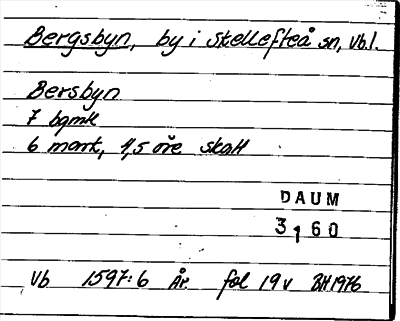 Bergsbyn, by i Skellefteå sn, Vbl.
Bersbyn
7 bgmk
6 mark, 1,5 öre skatt
DAUM
3160
Vb 1597:6 År fol 19v BH 1976